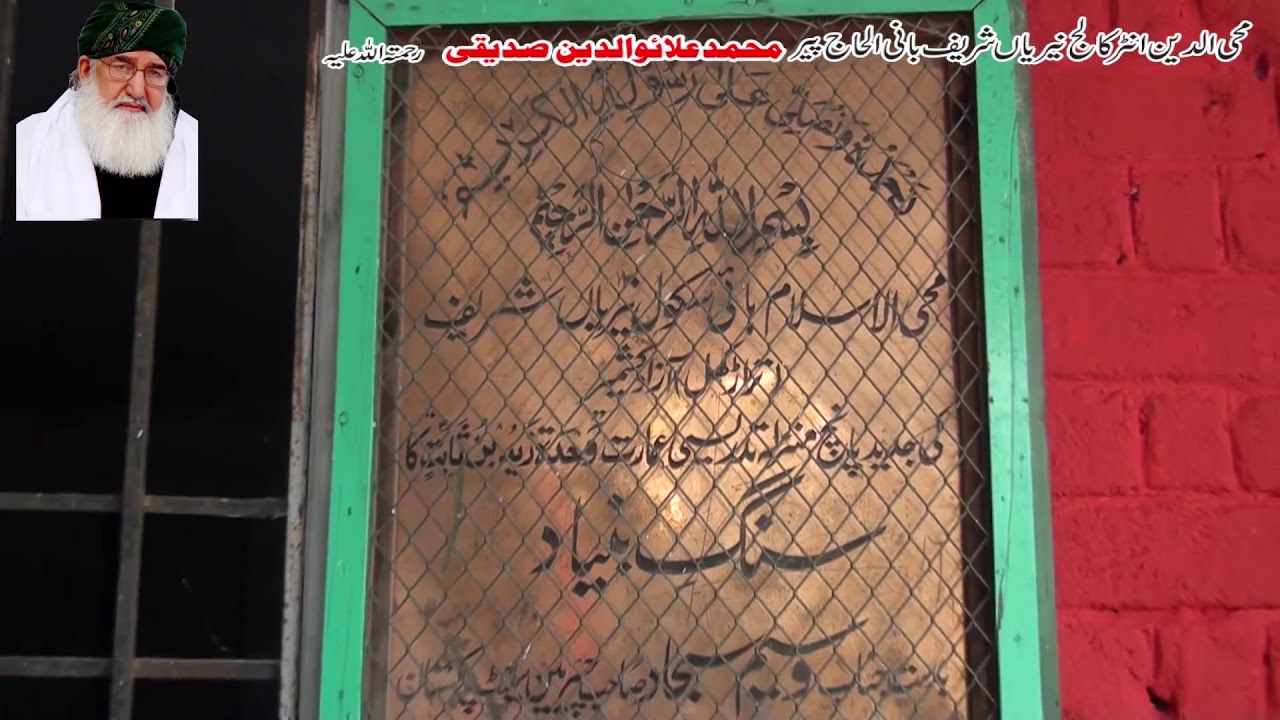 محی الدین انٹر کالج نیریاں شریف بانی الحاج پیر محمد علائوالدین صدیقی رحمتہ اللہ علیہ
نحمدہ ونصلی علی رسولہ الکریم
بسم اللہ الرحمن الرحیم
محی الاسلام ہائی سکول نیریاں شریف
تراڑکھل آزاد کشمیر
کی جدید پانچ منزلہ تدریسی عمارت وحدۃ زید بن ثابتؓ کا
سنگ بنیاد
بدست جناب وسیم سجاد صاحب چیرمین سینٹ پاکستان